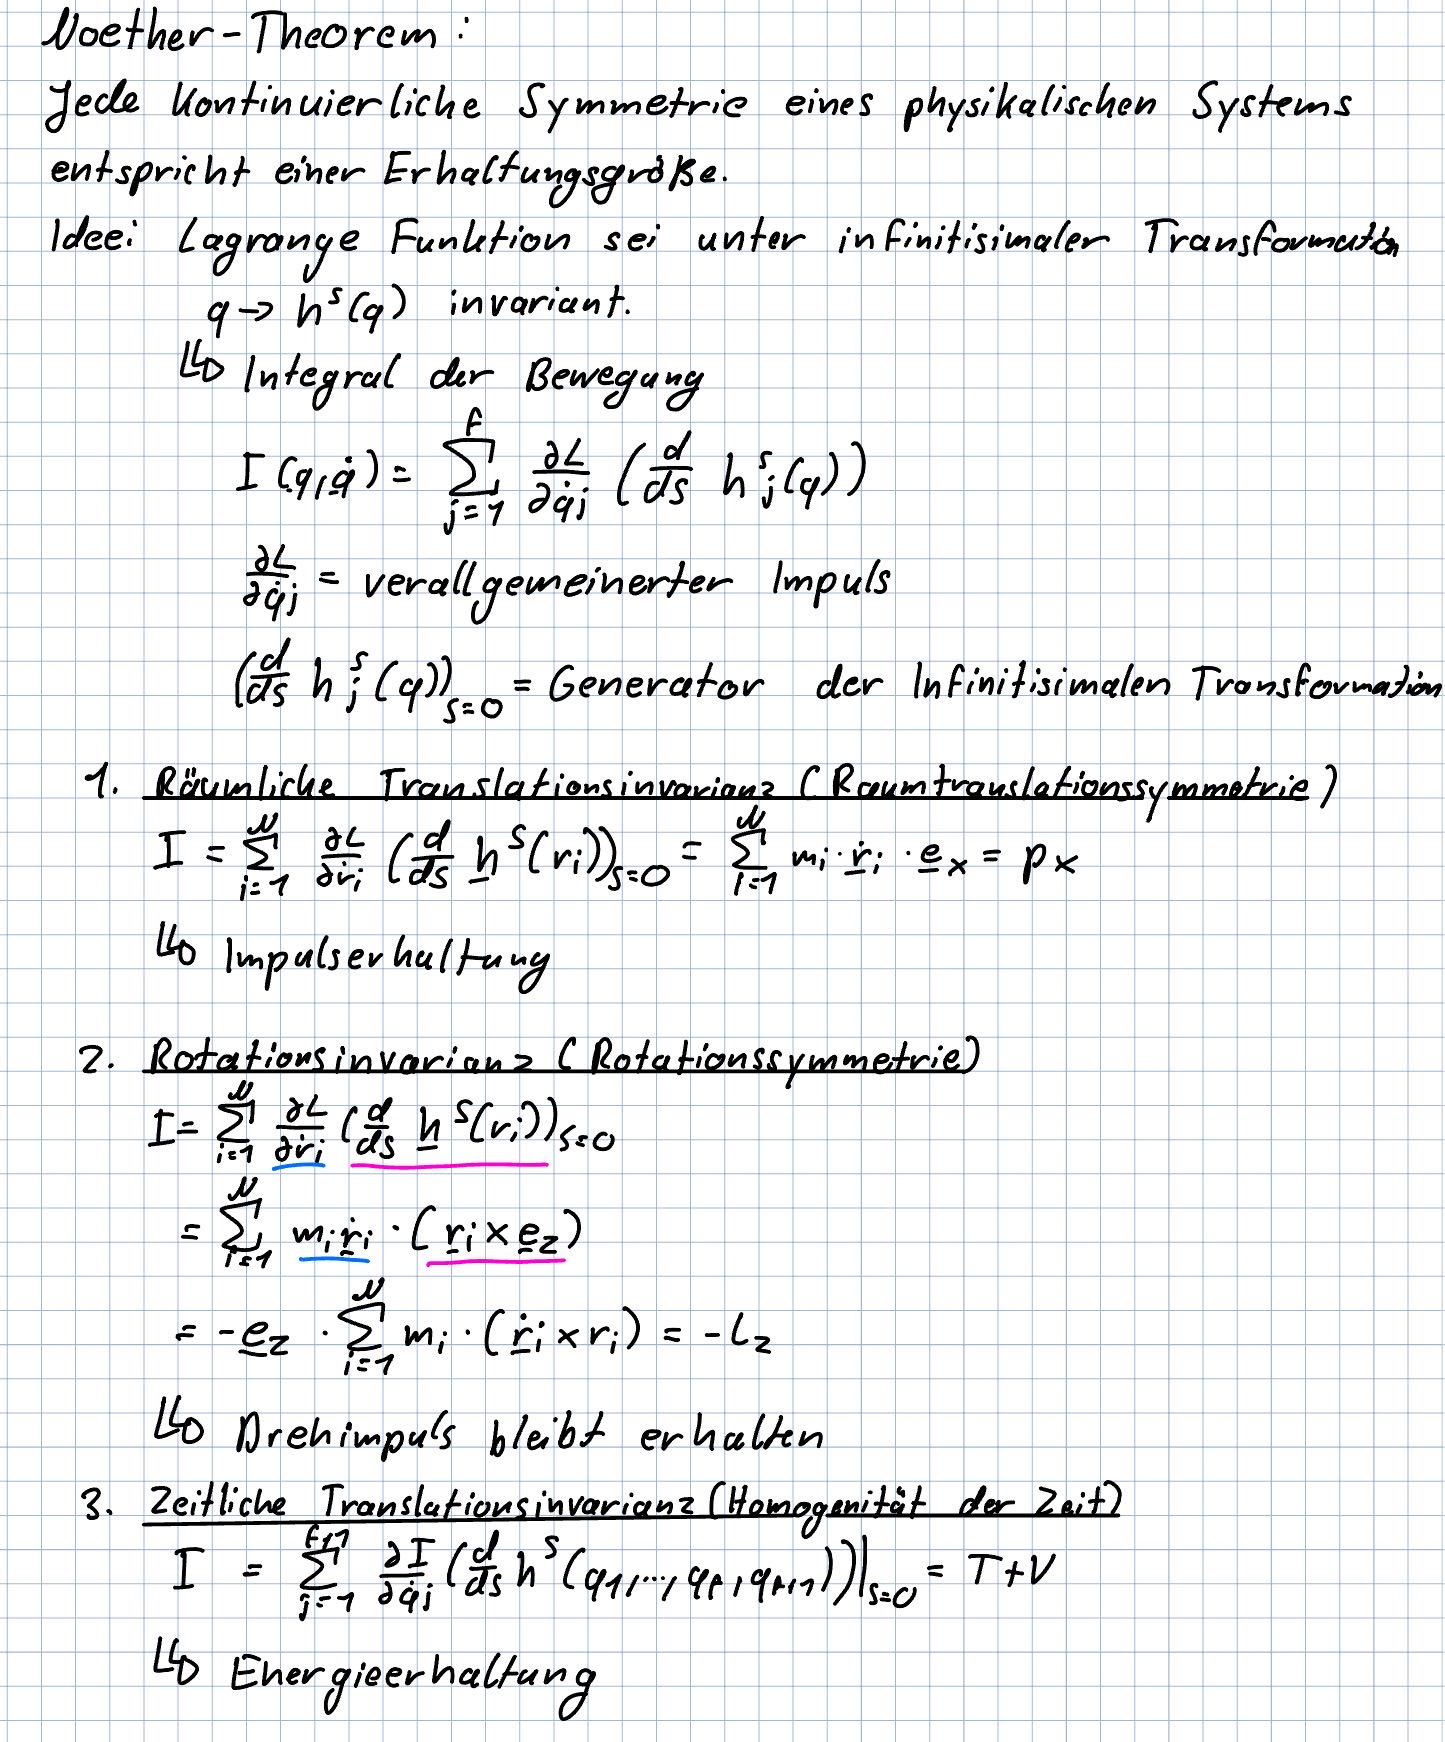 Noether-Theorem:
Jede kontinuierliche Symmetrie eines physikalischen Systems
entspricht einer Erhaltungsgröße.
Idee: Lagrange Funktion sei unter infinitisimaler Transformation
q → h^s(q) invariant.
↳ Integral der Bewegung
I(q,q̇) = ∑_{j=1}^{f} ∂L/∂q̇j (d/ds h^s_j(q))
∂L/∂q̇j = verallgemeinerter Impuls
(d/ds h^s_j(q))_{s=0} = Generator der Infinitisimalen Transformation
1. Räumliche Translationsinvarianz (Raumtranslationssymmetrie)
I = ∑_{i=1}^{N} ∂L/∂ṙi (d/ds h^s(ri))_{s=0} = ∑_{i=1}^{N} mi · ṙi · e_x = px
↳ Impulserhaltung
2. Rotationsinvarianz (Rotationssymmetrie)
I = ∑_{i=1}^{N} ∂L/∂ṙi (d/ds h^s(ri))_{s=0}
= ∑_{i=1}^{N} mi ṙi · (ri × e_z)
= -e_z · ∑_{i=1}^{N} mi · (ṙi × ri) = -Lz
↳ Drehimpuls bleibt erhalten
3. Zeitliche Translationsinvarianz (Homogenität der Zeit)
I = ∑_{j=1}^{f+1} ∂I/∂q̇j (d/ds h^s(q1,...,qf,qf+1))|_{s=0} = T+V
↳ Energieerhaltung